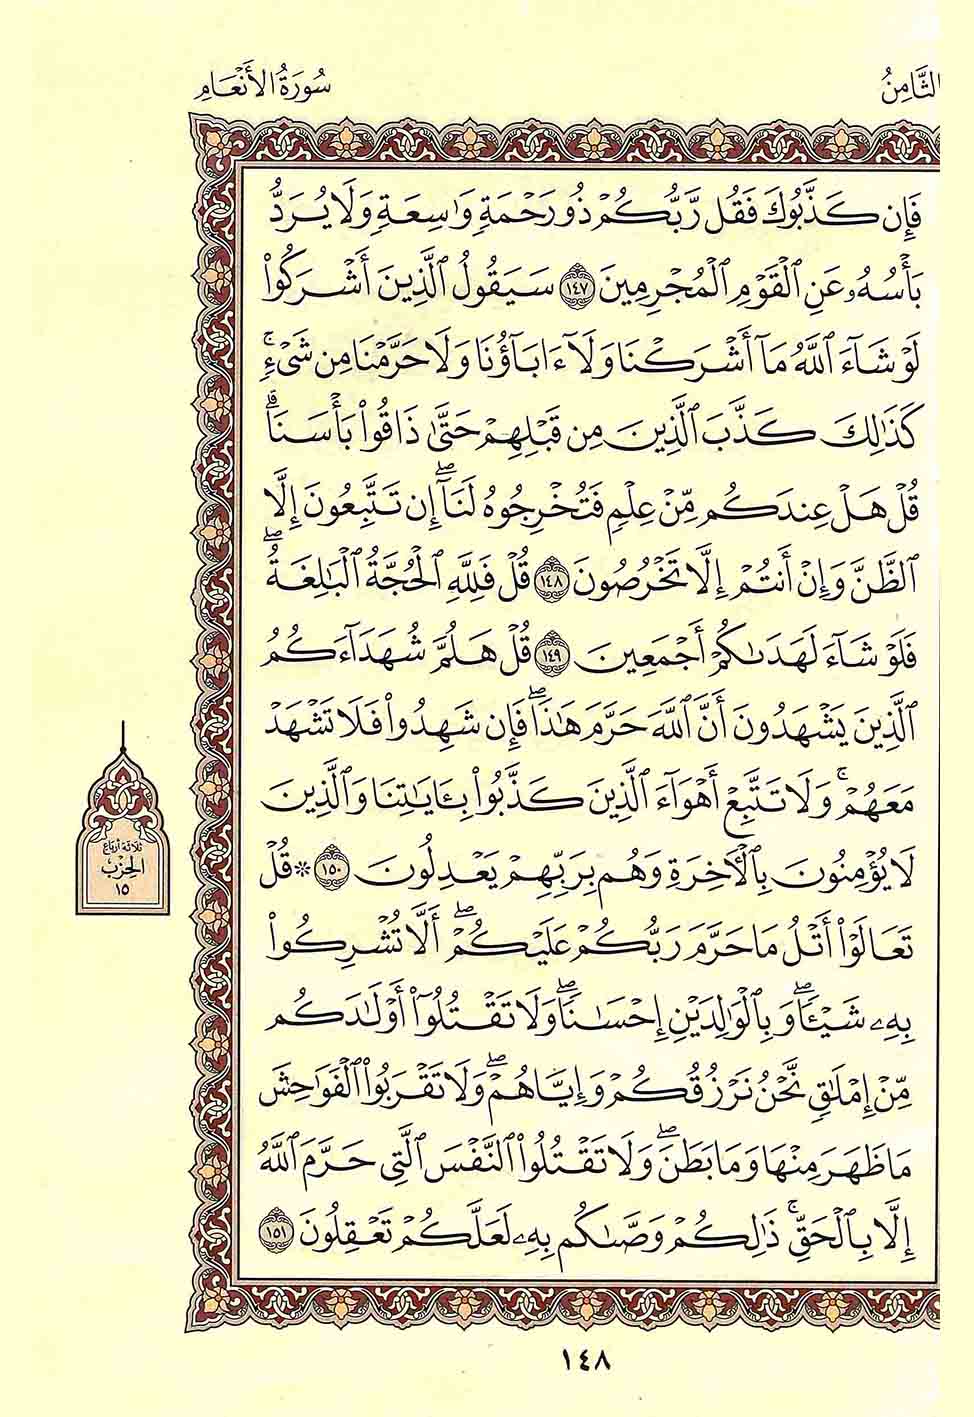 الثَّامِنُ
سُورَةُ الأَنْعَامِ
فَإِن كَذَّبُوكَ فَقُل رَّبُّكُمْ ذُو رَحْمَةٍ وَٰسِعَةٍ وَلَا يُرَدُّ
بَأْسُهُۥ عَنِ ٱلْقَوْمِ ٱلْمُجْرِمِينَ ١٤٧ سَيَقُولُ ٱلَّذِينَ أَشْرَكُوا۟
لَوْ شَآءَ ٱللَّهُ مَآ أَشْرَكْنَا وَلَآ ءَابَآؤُنَا وَلَا حَرَّمْنَا مِن شَىْءٍۚ
كَذَٰلِكَ كَذَّبَ ٱلَّذِينَ مِن قَبْلِهِمْ حَتَّىٰ ذَاقُوا۟ بَأْسَنَاۗ
قُلْ هَلْ عِندَكُم مِّنْ عِلْمٍ فَتُخْرِجُوهُ لَنَآۖ إِن تَتَّبِعُونَ إِلَّا
ٱلظَّنَّ وَإِنْ أَنتُمْ إِلَّا تَخْرُصُونَ ١٤٨ قُلْ فَلِلَّهِ ٱلْحُجَّةُ ٱلْبَٰلِغَةُۖ
فَلَوْ شَآءَ لَهَدَىٰكُمْ أَجْمَعِينَ ١٤٩ قُلْ هَلُمَّ شُهَدَآءَكُمُ
ٱلَّذِينَ يَشْهَدُونَ أَنَّ ٱللَّهَ حَرَّمَ هَٰذَاۖ فَإِن شَهِدُوا۟ فَلَا تَشْهَدْ
مَعَهُمْۚ وَلَا تَتَّبِعْ أَهْوَآءَ ٱلَّذِينَ كَذَّبُوا۟ بِـَٔايَٰتِنَا وَٱلَّذِينَ
لَا يُؤْمِنُونَ بِٱلْـَٔاخِرَةِ وَهُم بِرَبِّهِمْ يَعْدِلُونَ ١٥٠ * قُلْ
تَعَالَوْا۟ أَتْلُ مَا حَرَّمَ رَبُّكُمْ عَلَيْكُمْۖ أَلَّا تُشْرِكُوا۟
بِهِۦ شَيْـًٔاۖ وَبِٱلْوَٰلِدَيْنِ إِحْسَٰنًاۖ وَلَا تَقْتُلُوٓا۟ أَوْلَٰدَكُم
مِّنْ إِمْلَٰقٍ نَّحْنُ نَرْزُقُكُمْ وَإِيَّاهُمْۖ وَلَا تَقْرَبُوا۟ ٱلْفَوَٰحِشَ
مَا ظَهَرَ مِنْهَا وَمَا بَطَنَۖ وَلَا تَقْتُلُوا۟ ٱلنَّفْسَ ٱلَّتِى حَرَّمَ ٱللَّهُ
إِلَّا بِٱلْحَقِّۚ ذَٰلِكُمْ وَصَّىٰكُم بِهِۦ لَعَلَّكُمْ تَعْقِلُونَ ١٥١
ثلاثة أرباع
الحِزْب
١٥
١٤٨